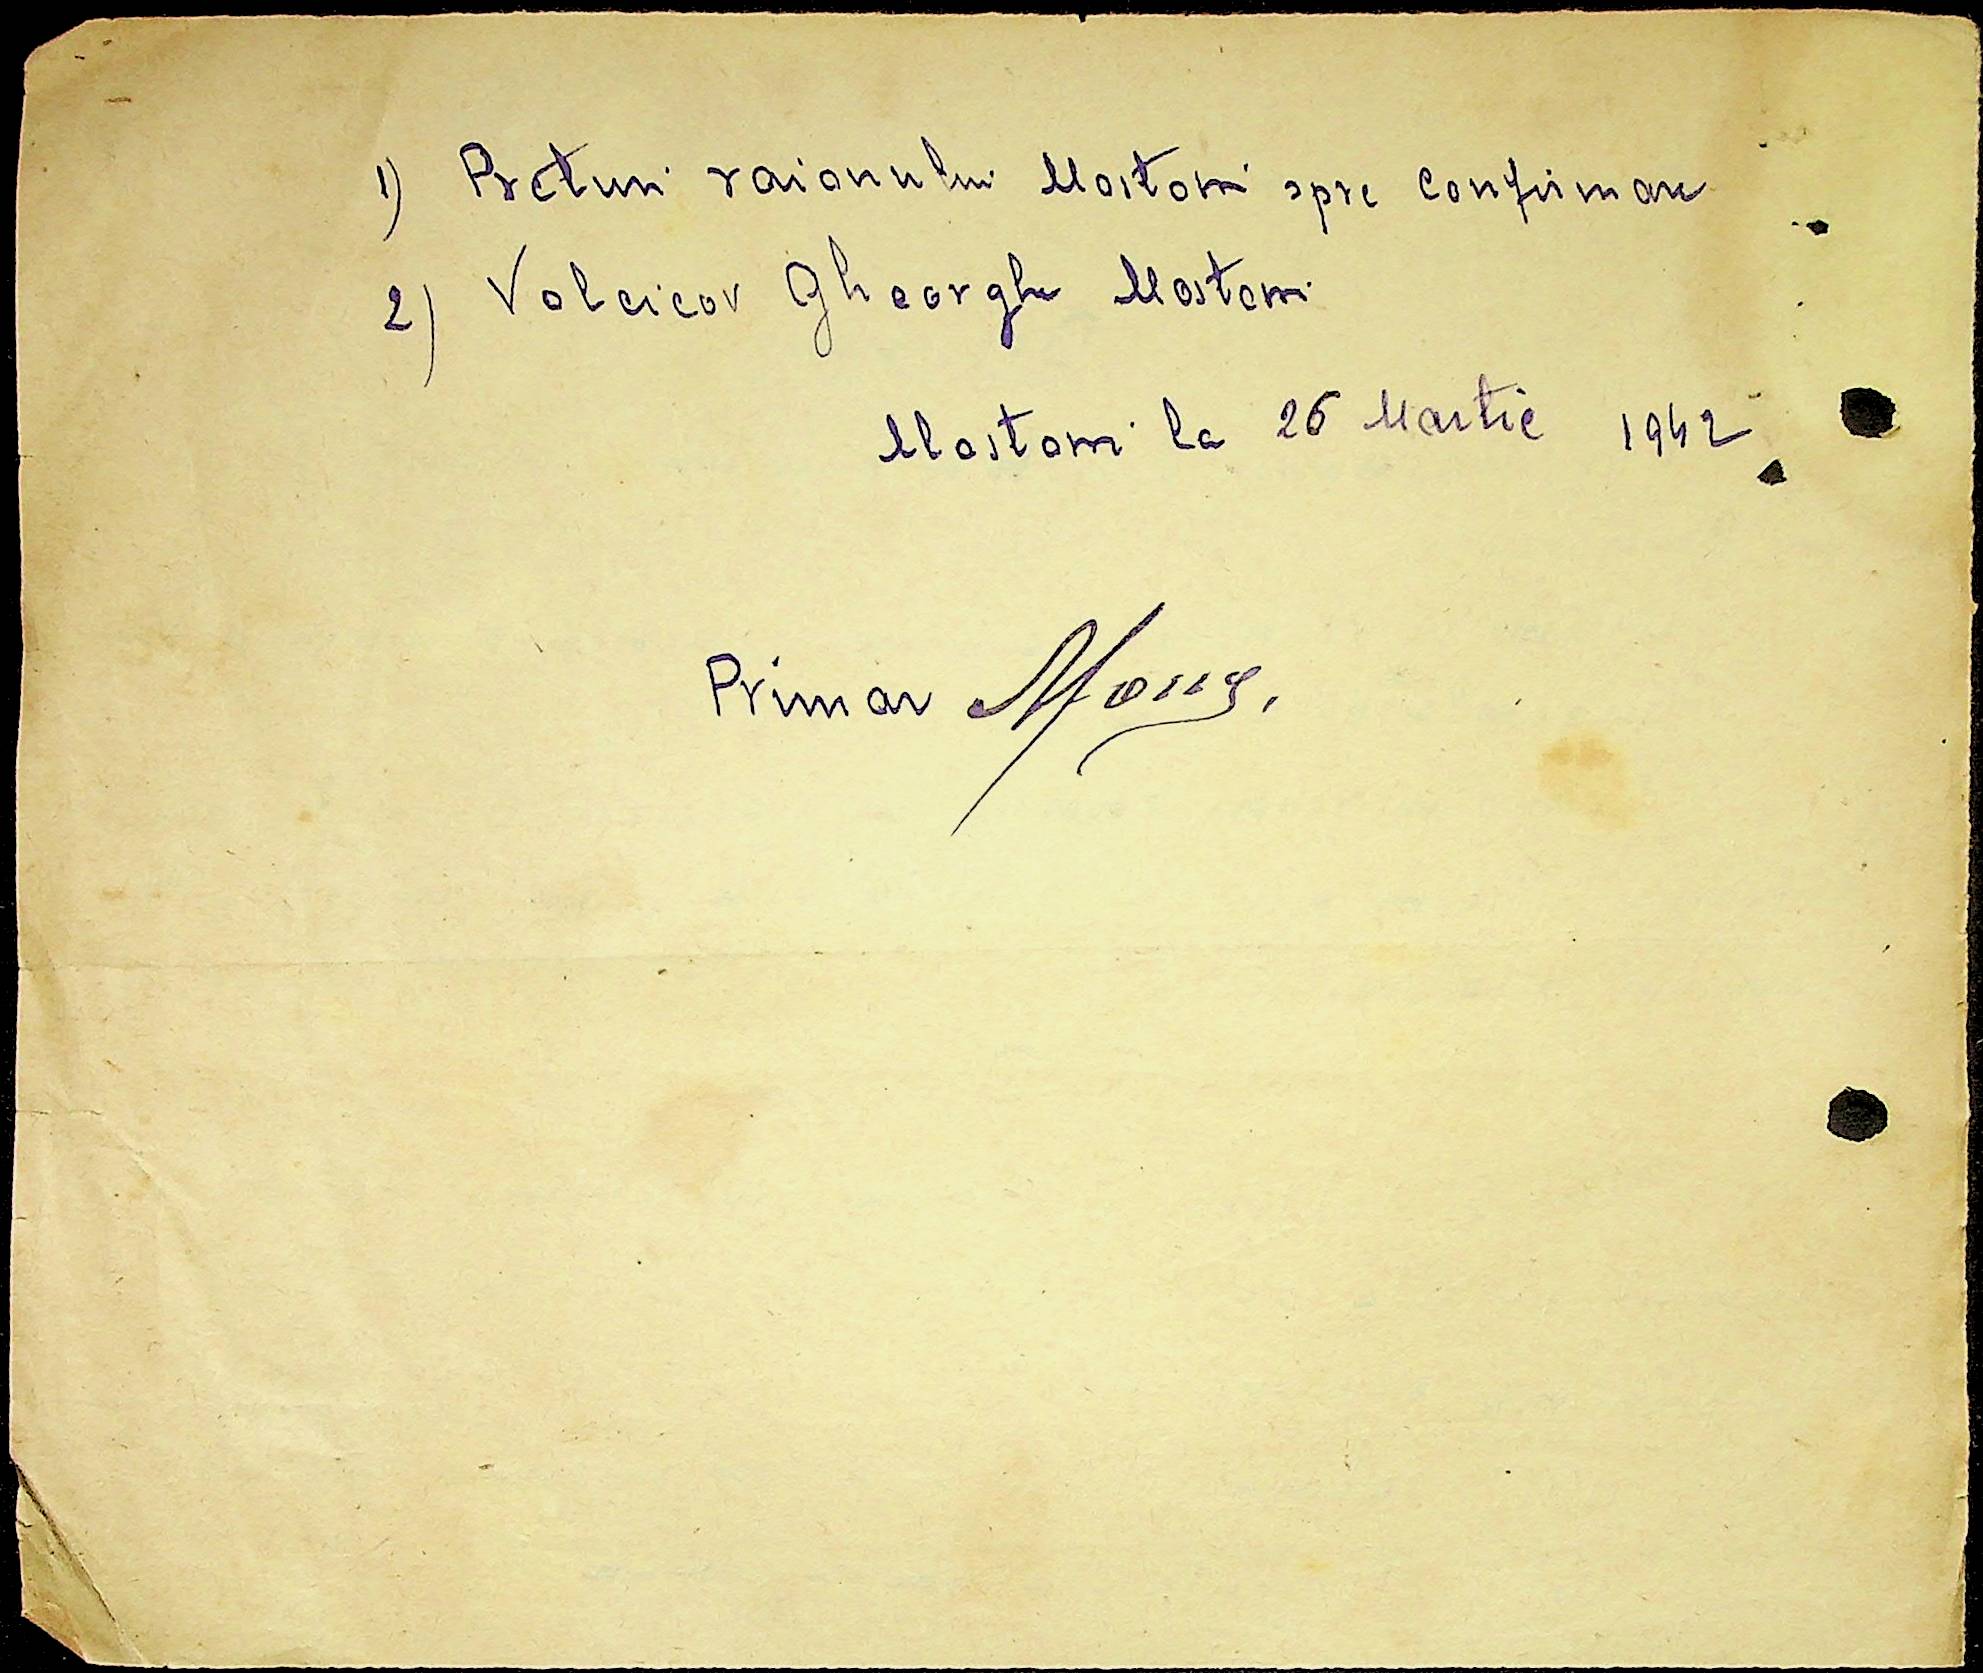 1) Preturi raionului Mostovoi spre confirmare
2) Volcicov Gheorghe Mostovoi
Mostovoi la 26 Martie 1942
Primar